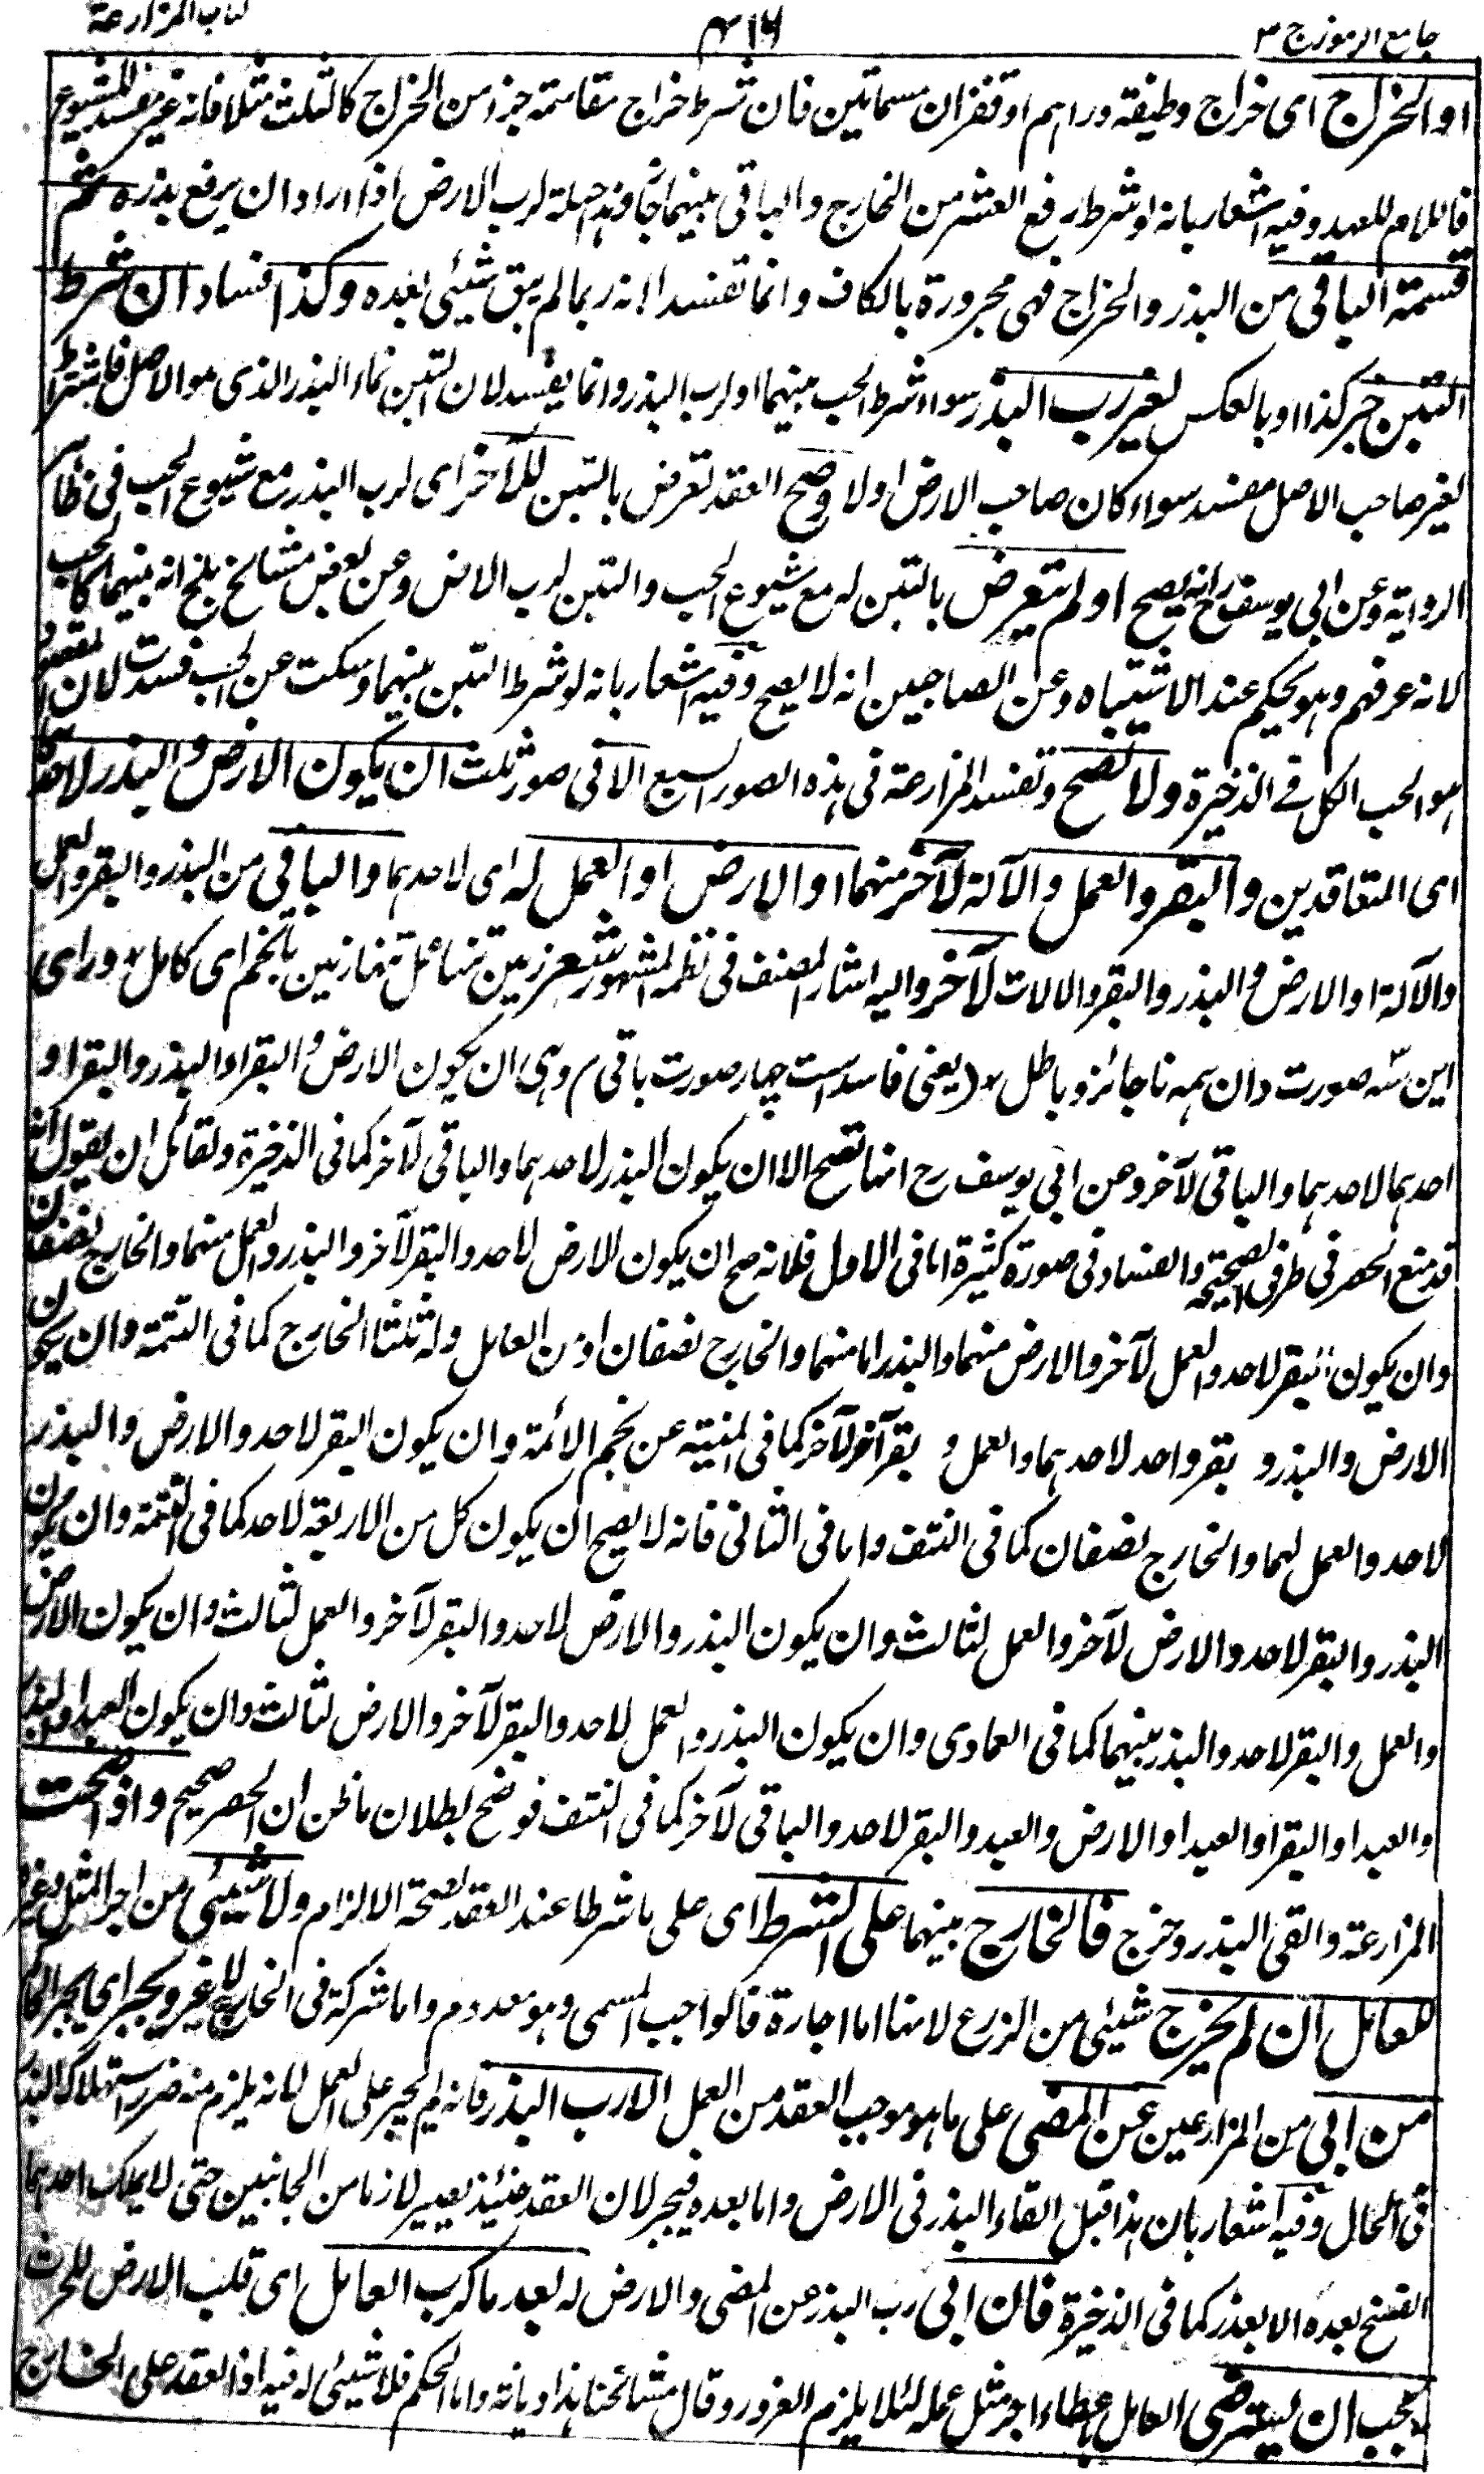 جامع الرموز ج ٣ ٤١٦ كتاب المزارعة
او الخراج اى خراج وظيفة دراهم او قفزان مسماتين فان شرط خراج مقاسمة جزء من الخراج كالثلث مثلا فانه غير مفسد للشيوع
فاللام للعهد وفيه اشعار بانه لو شرط رفع العشر من الخارج والباقى بينهما جاز وهذا حيلة لرب الارض اذا اراد ان يرفع بذره ثم
قسمة الباقى من البذر والخراج فهى مجرورة بالكاف وانما تفسد لانه ربما لم يبق شيئى بعده وكذا فساد ان شرط
التبن خبر كذا او بالعكس لغير رب البذر سواء شرط الحب بينهما او لرب البذر وانما يفسد لان التبن نماء البذر الذى هو الاصل فاشتراط
لغير صاحب الاصل مفسد سواء كان صاحب الارض او لا وصح العقد تعرض بالتبن للآخر اى لرب البذر مع شيوع الحب فى ظاهر
الرواية وعن ابى يوسف رح انه يصح او لم يتعرض بالتبن له مع شيوع الحب والتبن لرب الارض وعن بعض مشائخ بلخ انه بينهما كالحب
لانه عرفهم وهو يحكم عند الاشتباه وعن الصاحبين انه لا يصح وفيه اشعار بانه لو شرط التبن بينهما وسكت عن الحب فسدت لان المقصود
هو الحب الكل فى الذخيرة ولا تصح وتفسد المزارعة فى هذه الصور السبع الا فى صور ثلث ان يكون الارض والبذر لاحدهما
اى المتعاقدين والبقر والعمل والآلة لآخر منهما او الارض او العمل له اى لاحدهما والباقى من البذر والبقر والعمل
والآلة او الارض والبذر والبقر والالات لآخر واليه اشار المصنف فى نظمه المشهور شعر زمين تنها عمل تنها زمين با تخم اى كامل٭ وراى
اين سه صورت دان همه ناجائز و باطل٭ (يعنى فاسد است چهار صورت باقى) وهى ان يكون الارض والبقر او البذر والبقر او
احدهما لاحدهما والباقى لآخر وعن ابى يوسف رح انها تصح الا ان يكون البذر لاحدهما والباقى لآخر كما فى الذخيرة ولقائل ان يقول انه
قد منع الحصر فى طرفى الصحة والفساد فى صورة كثيرة اما فى الاول فلانه صح ان يكون الارض لاحد والبقر لآخر والبذر والعمل منهما والخارج نصفان
وان يكون البقر لاحد والعمل لآخر والارض منهما والبذر اما منهما والخارج نصفان او من العامل وله ثلثا الخارج كما فى التتمة وان يكون
الارض والبذر و بقر واحد لاحدهما والعمل و بقر آخر لآخر كما فى المنية عن نجم الائمة وان يكون البقر لاحد والارض والبذر
لاحد والعمل لهما والخارج نصفان كما فى النتف واما فى الثانى فانه لا يصح ان يكون كل من الاربعة لاحد كما فى التتمة وان يكون
البذر والبقر لاحد والارض لآخر والعمل لثالث وان يكون البذر والارض لاحد والبقر لآخر والعمل لثالث وان يكون الارض
والعمل والبقر لاحد والبذر بينهما كما فى العمادى وان يكون البذر والعمل لاحد والبقر لآخر والارض لثالث وان يكون العبد او البذر
والعبد او البقر او العبد او الارض والعبد والبقر لاحد والباقى لآخر كما فى النتف فوضح بطلان ما ظن ان الحصر صحيح واذا صحت
المزارعة والقى البذر وخرج فالخارج بينهما على الشرط اى على ما شرطا عند العقد لصحة الالزام ولا شيئى من اجر المثل وغيره
للعامل ان لم يخرج شيئى من الزرع لانها اما اجارة فالواجب المسمى وهو معدوم واما شركة فى الخارج لا غير ويجبر اى يجبر الحاكم
من ابى من المزارعين عن المضى على ما هو موجب العقد من العمل الا رب البذر فانه لم يجبر على العمل لانه يلزم منه ضرر استهلاك البذر
فى الحال وفيه اشعار بان هذا قبل القاء البذر فى الارض واما بعده فيجبر لان العقد حينئذ يصير لازما من الجانبين حتى لا يملك احدهما
الفسخ بعده الا بعذر كما فى الذخيرة فان ابى رب البذر عن المضى والارض له بعد ما كرب العامل اى قلب الارض للحرث
يجب ان يسترضى العامل باعطاء اجر مثل عمله لئلا يلزم الغرور وقال مشائخنا هذا ديانة واما الحكم فلا شيئى له فيه اذ العقد على الخارج